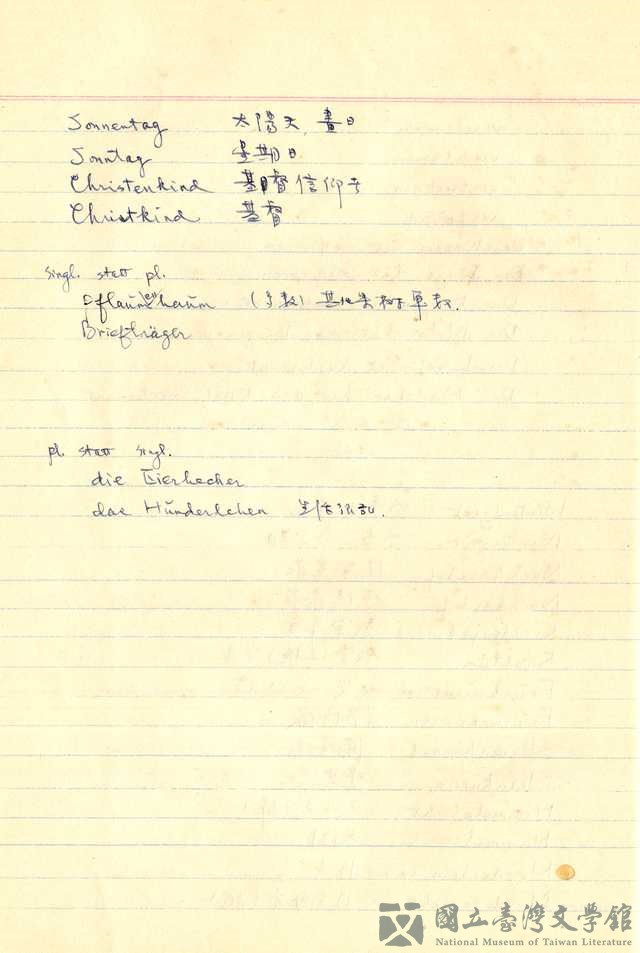 Sonnentag 太陽天, 晝日
Sonntag 星期日
Christenkind 基督信仰子
Christkind 基督
singl. statt pl.
Pflaumenbaum (多數) 其他果樹單數.
Briefträger
pl. statt singl.
die Eierbecher
das
國立臺灣文學館
National Museum of Taiwan Literature